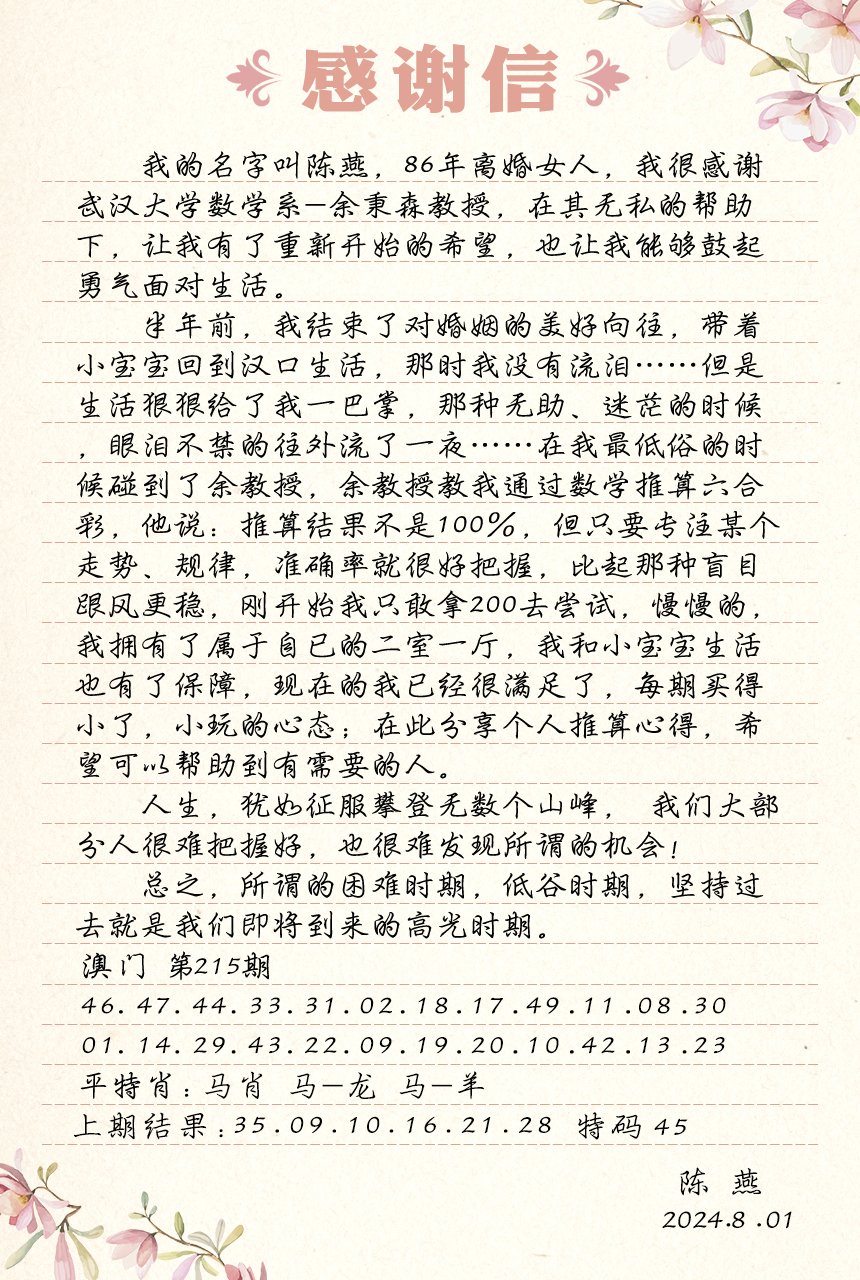 感谢信
我的名字叫陈燕，86年离婚女人，我很感谢
武汉大学数学系—余秉森教授，在其无私的帮助
下，让我有了重新开始的希望，也让我能够鼓起
勇气面对生活。
半年前，我结束了对婚姻的美好向往，带着
小宝宝回到汉口生活，那时我没有流泪……但是
生活狠狠给了我一巴掌，那种无助、迷茫的时候
，眼泪不禁的往外流了一夜……在我最低俗的时
候碰到了余教授，余教授教我通过数学推算六合
彩，他说：推算结果不是100%，但只要专注某个
走势、规律，准确率就很好把握，比起那种盲目
跟风更稳，刚开始我只敢拿200去尝试，慢慢的，
我拥有了属于自已的二室一厅，我和小宝宝生活
也有了保障，现在的我已经很满足了，每期买得
小了，小玩的心态；在此分享个人推算心得，希
望可以帮助到有需要的人。
人生，犹如征服攀登无数个山峰， 我们大部
分人很难把握好，也很难发现所谓的机会！
总之，所谓的困难时期，低谷时期，坚持过
去就是我们即将到来的高光时期。
澳门 第215期
46.47.44.33.31.02.18.17.49.11.08.30
01.14.29.43.22.09.19.20.10.42.13.23
平特肖：马肖 马—龙 马—羊
上期结果：35.09.10.16.21.28 特码 45
陈 燕
2024.8.01